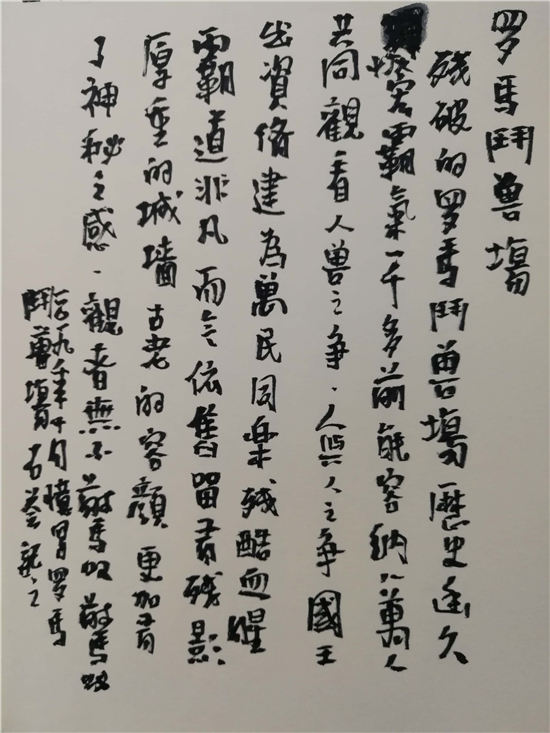 罗馬鬥兽場
残破的罗馬鬥兽場歷史悠久
容霸氣一千多前能容納八萬人
共同觀看人兽之争、人與人之争國王
出資修建為萬民同楽残酷血腥
霸道非凡而今依舊留着残影
厚重的城墻古老的容顏更加有
了神秘之感、觀者無不
年十月憶罗馬
鬥兽場